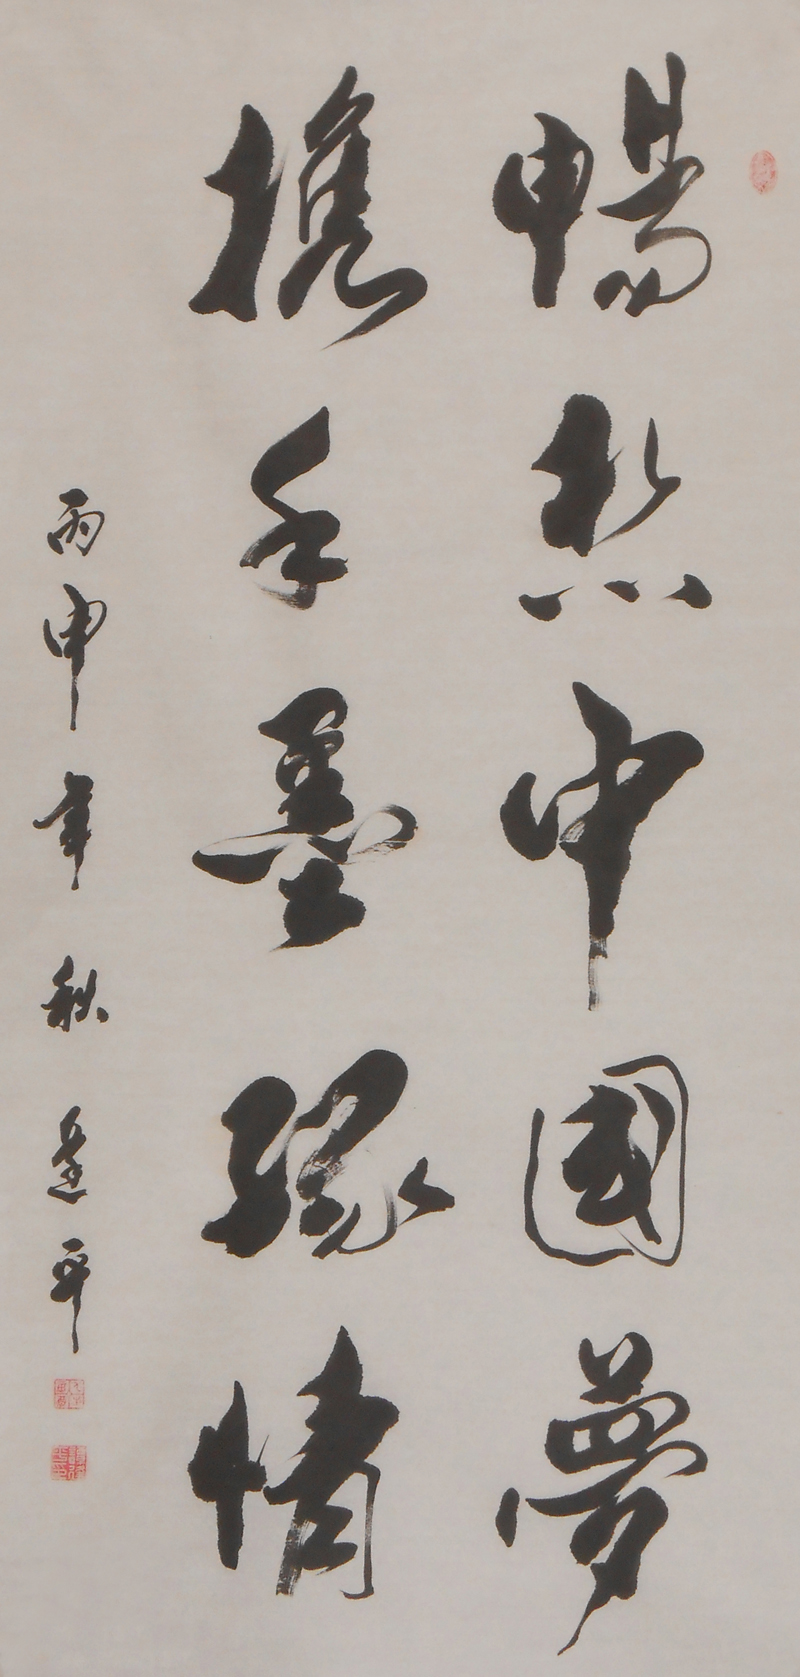 暢想中國夢
携手墨緣情
丙申年秋建平